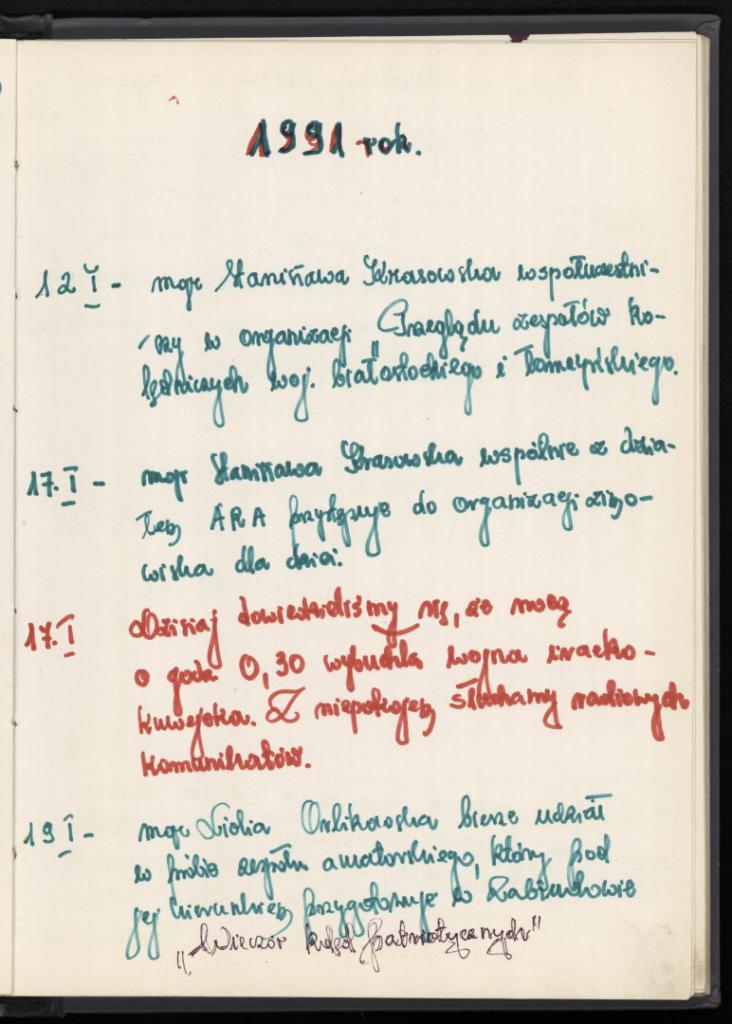 1991 rok.
12 I - mgr Stanisława Krasowska współuczestni-
czy w organizacji "Przeglądu zespołów ko-
lędniczych woj. białostockiego i łomżyńskiego.
17. I - mgr Stanisława Krasowska wspólnie z dzia-
łem ARA przystępuje do organizacji zimo-
wiska dla dzieci.
17. I Dzisiaj dowiedzieliśmy się, że nocą
o godz. 0,30 wybuchła wojna iracko-
kuwejcka. Z niepokojem słuchamy radiowych
komunikatów.
19 I - mgr Lidia Orlikowska bierze udział
w próbie zespołu amatorskiego, który pod
jej kierunkiem przygotowuje w Zabłudowie
"Wieczór kolęd patriotycznych"